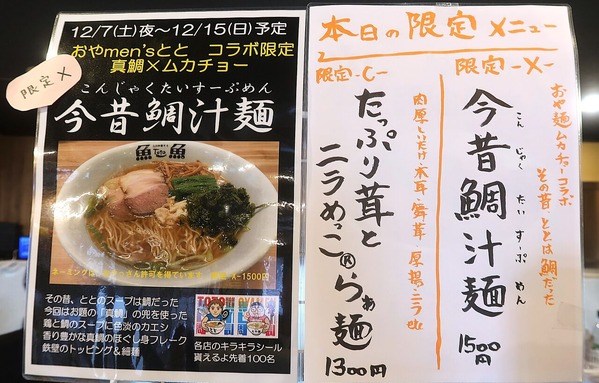 12/7(土)夜〜12/15(日)予定
おやmen'sとと コラボ限定
真鯛×ムカチョー
限定 X
こんじゃくたいすーぷめん
今昔鯛汁麺
魚 Toto 魚
限定-X-1500円
その昔、ととのスープは鯛だった
今回はお題の「真鯛」の兜を使った
鶏と鯛のスープに色淡のカエシ
香り豊かな真鯛のほぐし身フレーク
鉄壁のトッピング&細麺
各店のキラキラシール
貰えるよ先着100名
本日の限定メニュー
限定-X-
おや麺ムカチョーコラボ
その昔、ととは鯛だった
今昔鯛汁麺
こんじゃくたいすーぷめん
1500円
限定-C-
肉厚しいたけ・木耳・舞茸・厚揚・ニラetc
たっぷり茸と
ニラめっこ®らぁ麺
1300円